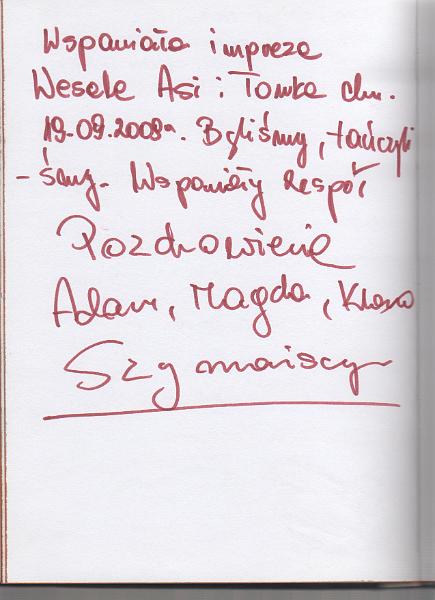 Wspaniała impreza
Wesele Asi i Tomka dn.
19.09.2009r. Byliśmy, tańczyli
-śmy. Wspaniały zespół
Pozdrowienia
Adam, Magda,
Szymańscy